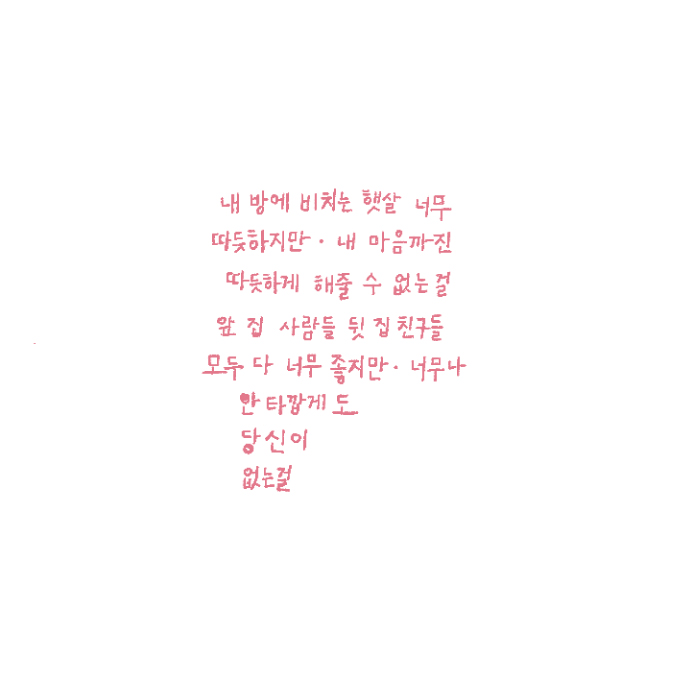 내 방에 비치는 햇살 너무
따듯하지만· 내 마음까진
따듯하게 해줄 수 없는걸
앞 집 사람들 뒷 집 친구들
모두 다 너무 좋지만· 너무나
안타깝게 도
당신이
없는걸